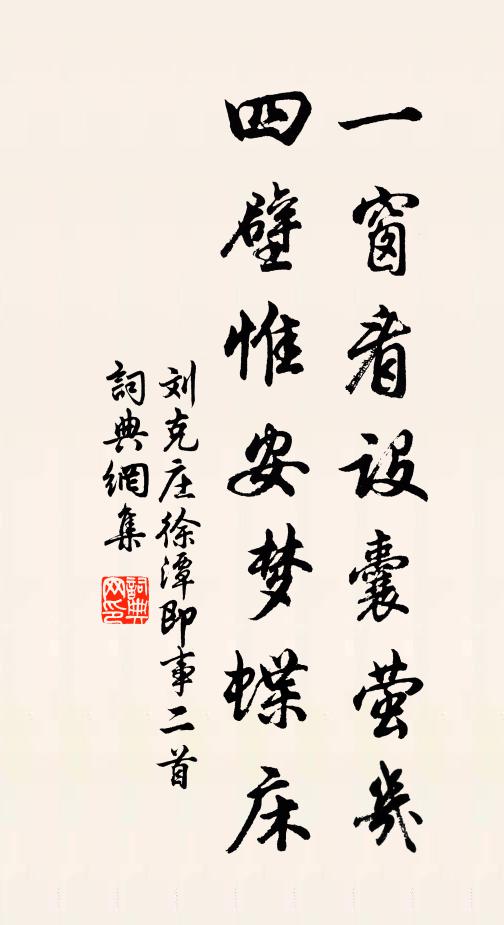 一窗着设囊萤幾
四壁惟安梦蝶床
刘克庄徐潭即事二首
詞典網集
詞典網印